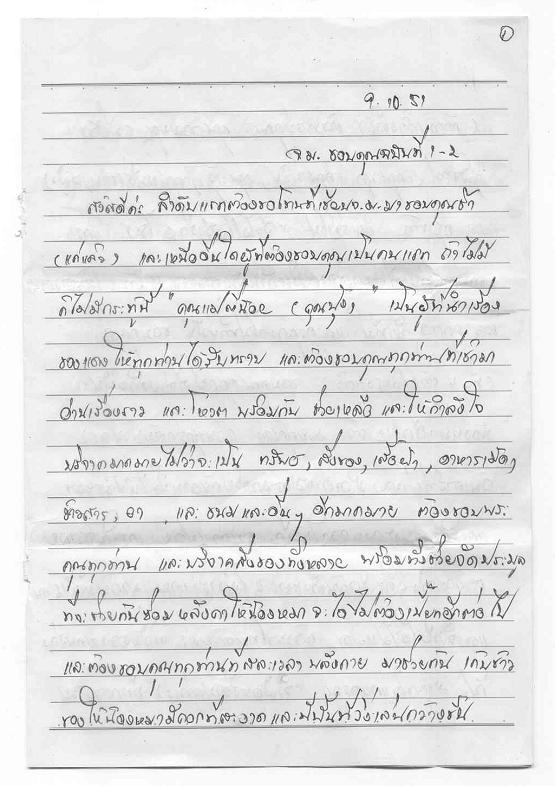 ①
9.10.51
จม. ขอบคุณฉบับที่ 1-2
สวัสดีค่ะ ลำดับแรกต้องขอโทษที่เขียนจ.ม.มาขอบคุณช้า
และเหนืออื่นใดผู้ที่ต้องขอบคุณเป็นคนแรก ถ้าไม่มี
ก็ไม่มีกระทู้นี้ "คุณแม่สี่น้อย (คุณปุ้ง)" เป็นผู้ที่นำเรื่อง
ของแดงให้ทุกท่านได้รับทราบ และต้องขอบคุณทุกท่านที่เข้ามา
อ่านเรื่องราว และโหวต พร้อมกัน ช่วยเหลือ และให้กำลังใจ
บริจาคมากมายไม่ว่าจะเป็น ทรัพย์, สิ่งของ, เสื้อผ้า, อาหารเม็ด,
ข้าวสาร, ยา, และ ขนมและอื่นๆ อีกมากมาย ต้องขอบพระ
คุณทุกท่าน และบริจาคสิ่งของทั้งหลาย พร้อมทั้งช่วยจัดประมูล
ที่จะช่วยกันซ่อมหลังคาให้น้องหมา จะได้ไม่ต้องเปียกอีกต่อไป
และต้องขอบคุณทุกท่านที่สละเวลา พลังกาย มาช่วยกัน เก็บข้าว
ของให้น้องหมามีคอกที่สะอาด และมีพื้นที่วิ่งเล่นกว้างขึ้น